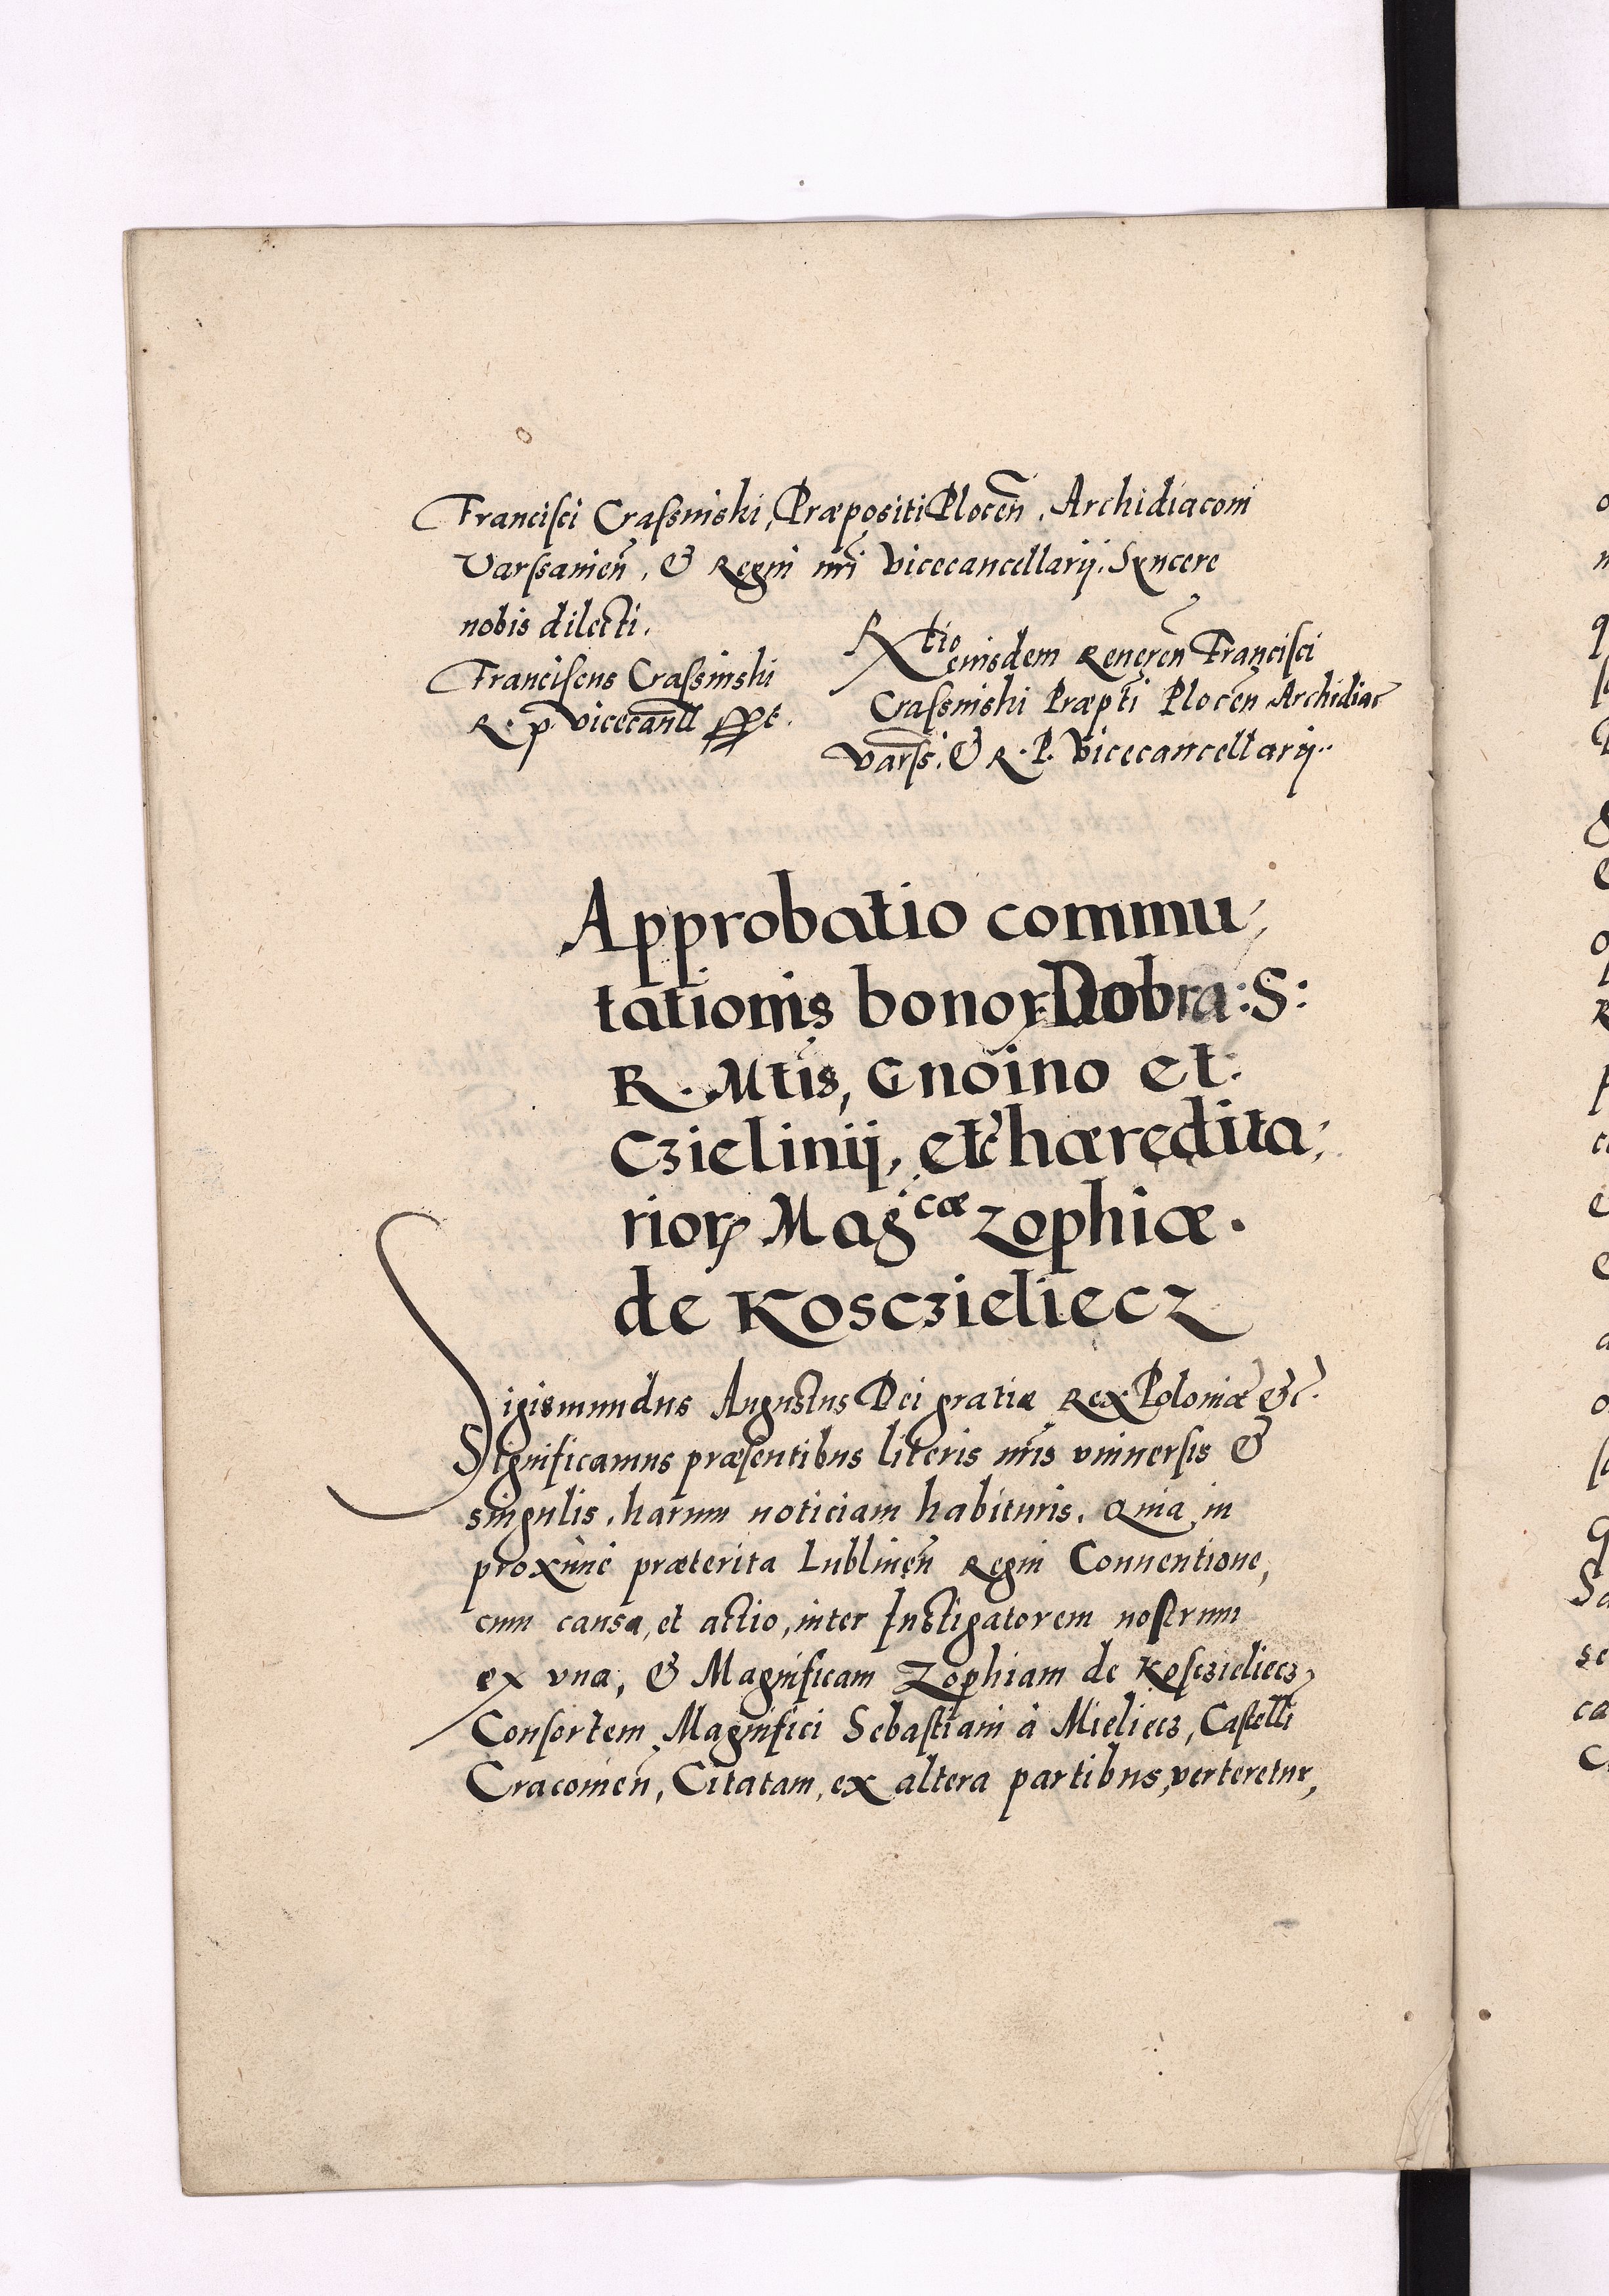 Francisci Crassinski, Præpositi Plocen̄, Archidiaconi
Varssauien̄, & Regni nr̄i Vicecancellarij, Syncere
nobis dilecti.
Franciscus Crassinski
R. p. Vicecanll̄ sst.
Rtio eiusdem Reueren̄ Francisci
Crassinski Præpti Plocen̄ Archidiac̄
Varss: & R. P. Vicecancellarij..
Approbatio commu,
tationis bonoꝝ Dobra: S:
R. Mtis, Gnoino et:
Czielinij, etc̄ hæredita,
rioꝝ Mag^cæ Zophiæ.
de Kosczieliecz
Sigismundus Augustus Dei gratia Rex Poloniæ &c̄.
Significamus præsentibus literis nr̄is vniuersis &
singulis, harum noticiam habituris. Quia in
proxime præterita Lublinen̄ Regni Conuentione,
cum causa, et actio, inter Instigatorem nostrum
ex vna, & Magnificam Zophiam de Kosczieliecz,
Consortem Magnifici Sebastiani à Mieliecz, Castelli
Cracouien̄, Citatam, ex altera partibus, verteretur,